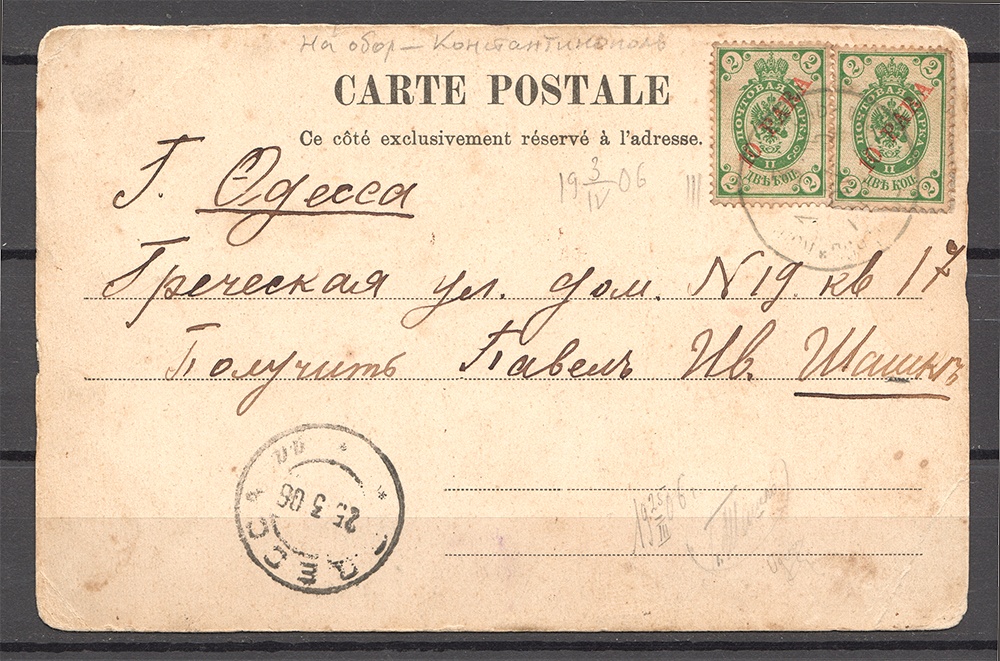 На обор – Константинополь
CARTE POSTALE
Ce côté exclusivement réservé à l'adresse.
2 2
ПОЧТОВАЯ МАРКА
10 PARA
II
2 ДВѢ КОП. 2
2 2
ПОЧТОВАЯ МАРКА
10 PARA
II
2 ДВѢ КОП. 2
19 3/IV 06
III
Г. Одесса
Греческая ул. дом. N 19. кв 17
Получить Павелъ Ив. Шашкъ
ОДЕССА
25 3 06
19 25/III 06 г.